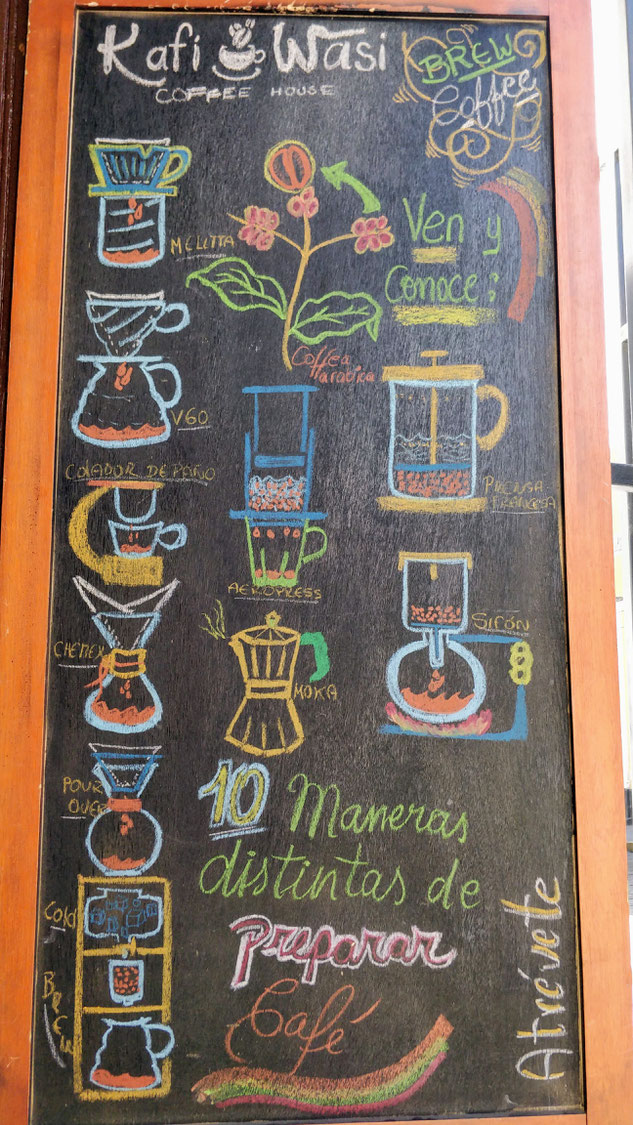 Kafi Wasi
COFFEE HOUSE
BREW
Coffee
Ven y
Conoce:
MELITTA
Coffea
Arabica
V60
COLADOR DE PAÑO
PRENSA
FRANCESA
AEROPRESS
CHEMEX
MOKA
SIFÓN
POUR
OVER
10 Maneras
distintas de
Preparar
Café
Cold
BREW
Atrévete